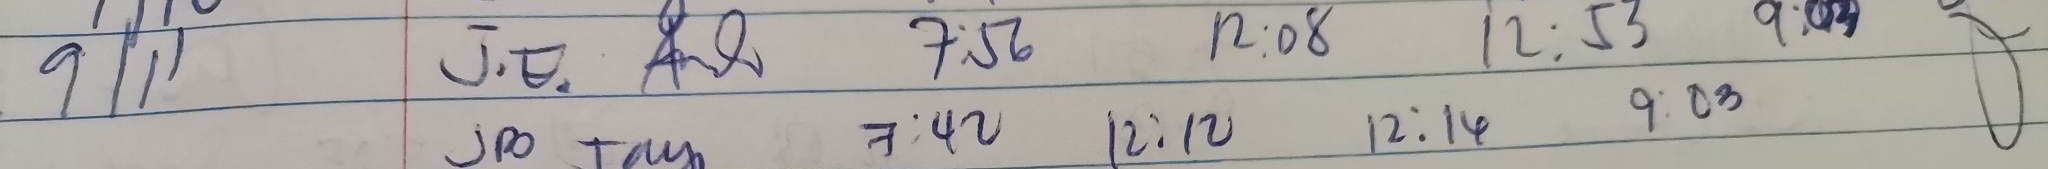 9/11 J.E. 7:56 12:08 12:53 9:03
JPO 7:42 12:12 12:14 9:03